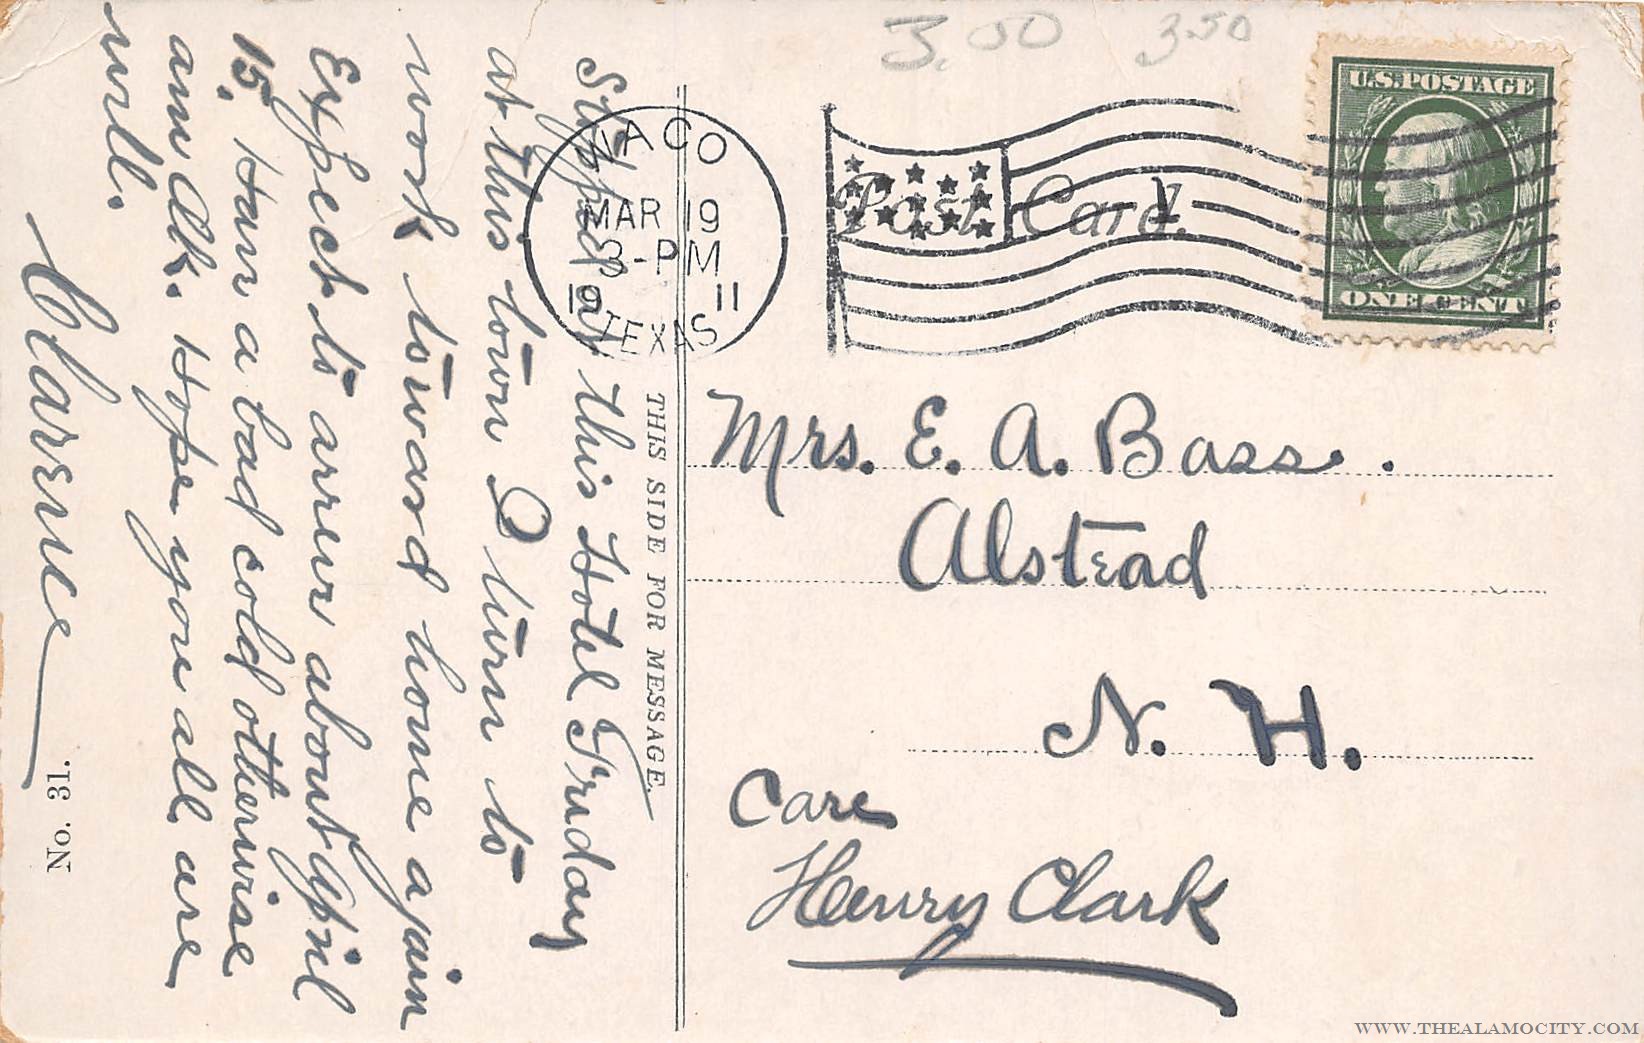 3.00
3.50
U.S.POSTAGE
ONE CENT
WACO
MAR 19
2-PM
1911
TEXAS
Post Card.
THIS SIDE FOR MESSAGE.
Stopped at this Hotel Friday
at this town I turn to
work toward home again
Expect to arrive about April
15. Have a bad cold otherwise
am Ok. Hope you all are
well.
Clarence
No. 31.
Mrs. E. A. Bass.
Alstead
N. H.
Care
Henry Clark
WWW.THEALAMOCITY.COM